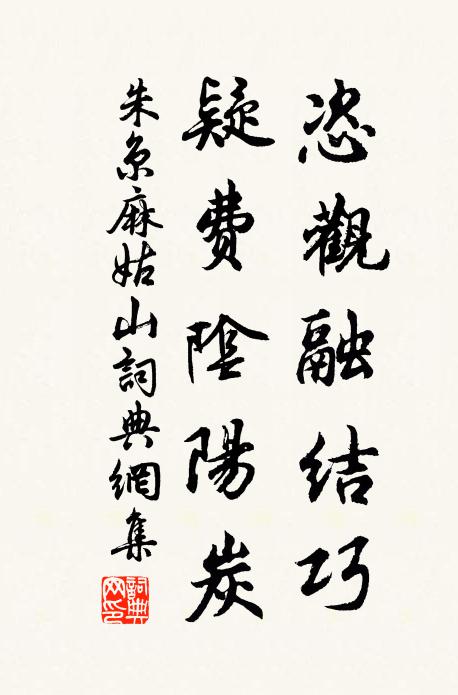 恣觀融結巧
疑費陰陽炭
朱京麻姑山詞典網集
詞典网印